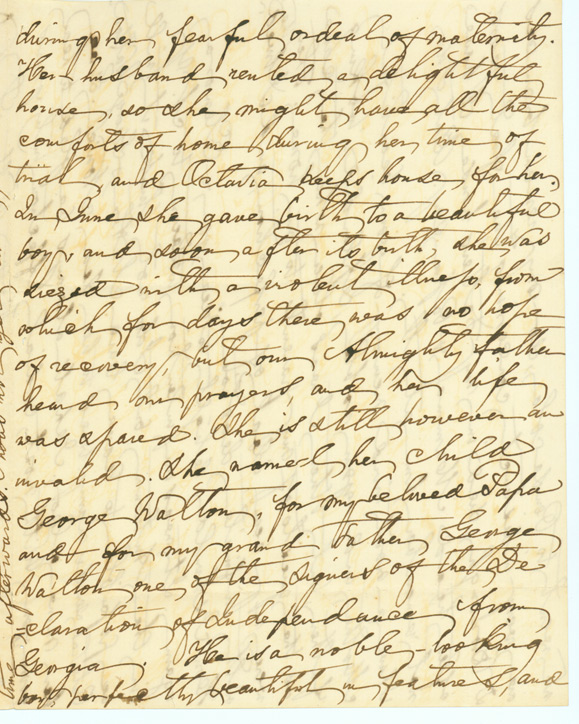 during her fearful ordeal of maternity.
Her husband rented a delightful
house, so she might have all the
comforts of home during her time of
trial, and Octavia keeps house for her.
In June she gave birth to a beautiful
boy, and soon after its birth, she was
siezed with a violent illness, from
which for days there was no hope
of recovery, but our Almighty father
heard our prayers, and her life
was spared. She is still however an
invalid. She named her child
George Walton, for my beloved Papa
and for my grand father George
Walton one of the signers of the De
-claration of Independance from
Georgia. He is a noble-looking
boy, perfectly beautiful in features, and
afterwards.